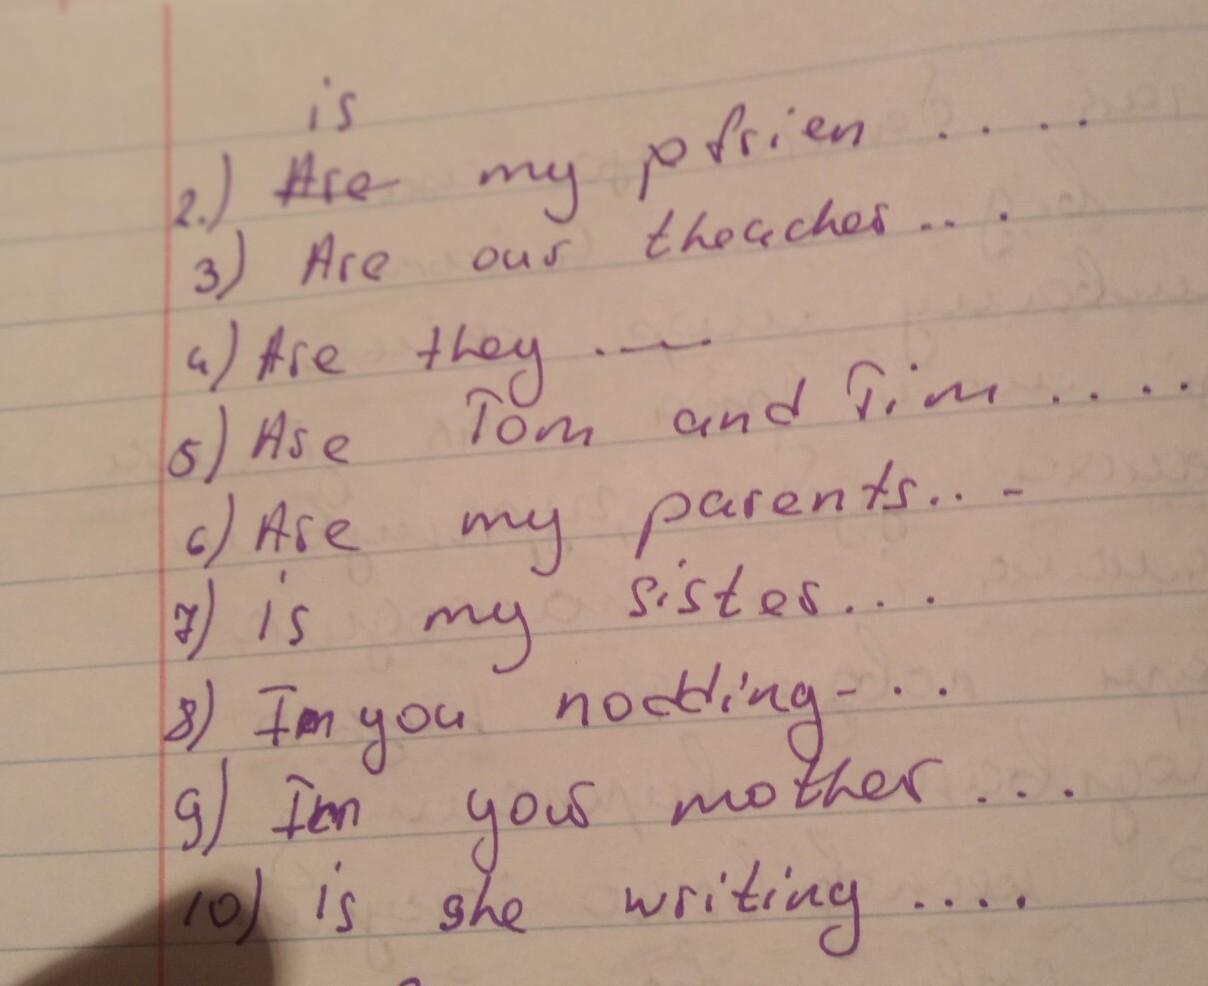 is
2.) Are my pfrien ....
3) Are our theacher ...
4) Are they .....
5) Are Tom and Tim ....
6) Are my parents.. -
7) is my sister...
8) Im you nodding-...
9) Im your mother ...
10) is she writing ....